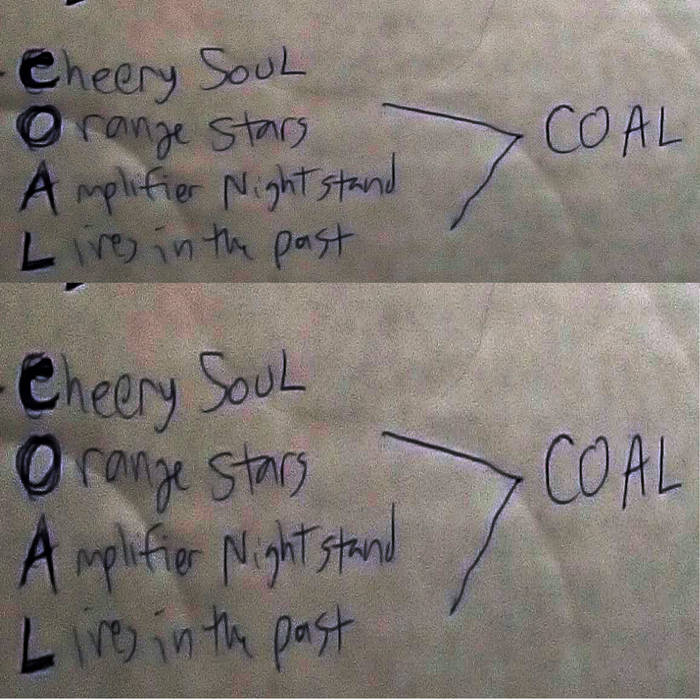 Cheery Soul
Orange Stars
COAL
Amplifier Nightstand
Lives in the past
Cheery Soul
Orange Stars
COAL
Amplifier Nightstand
Lives in the past